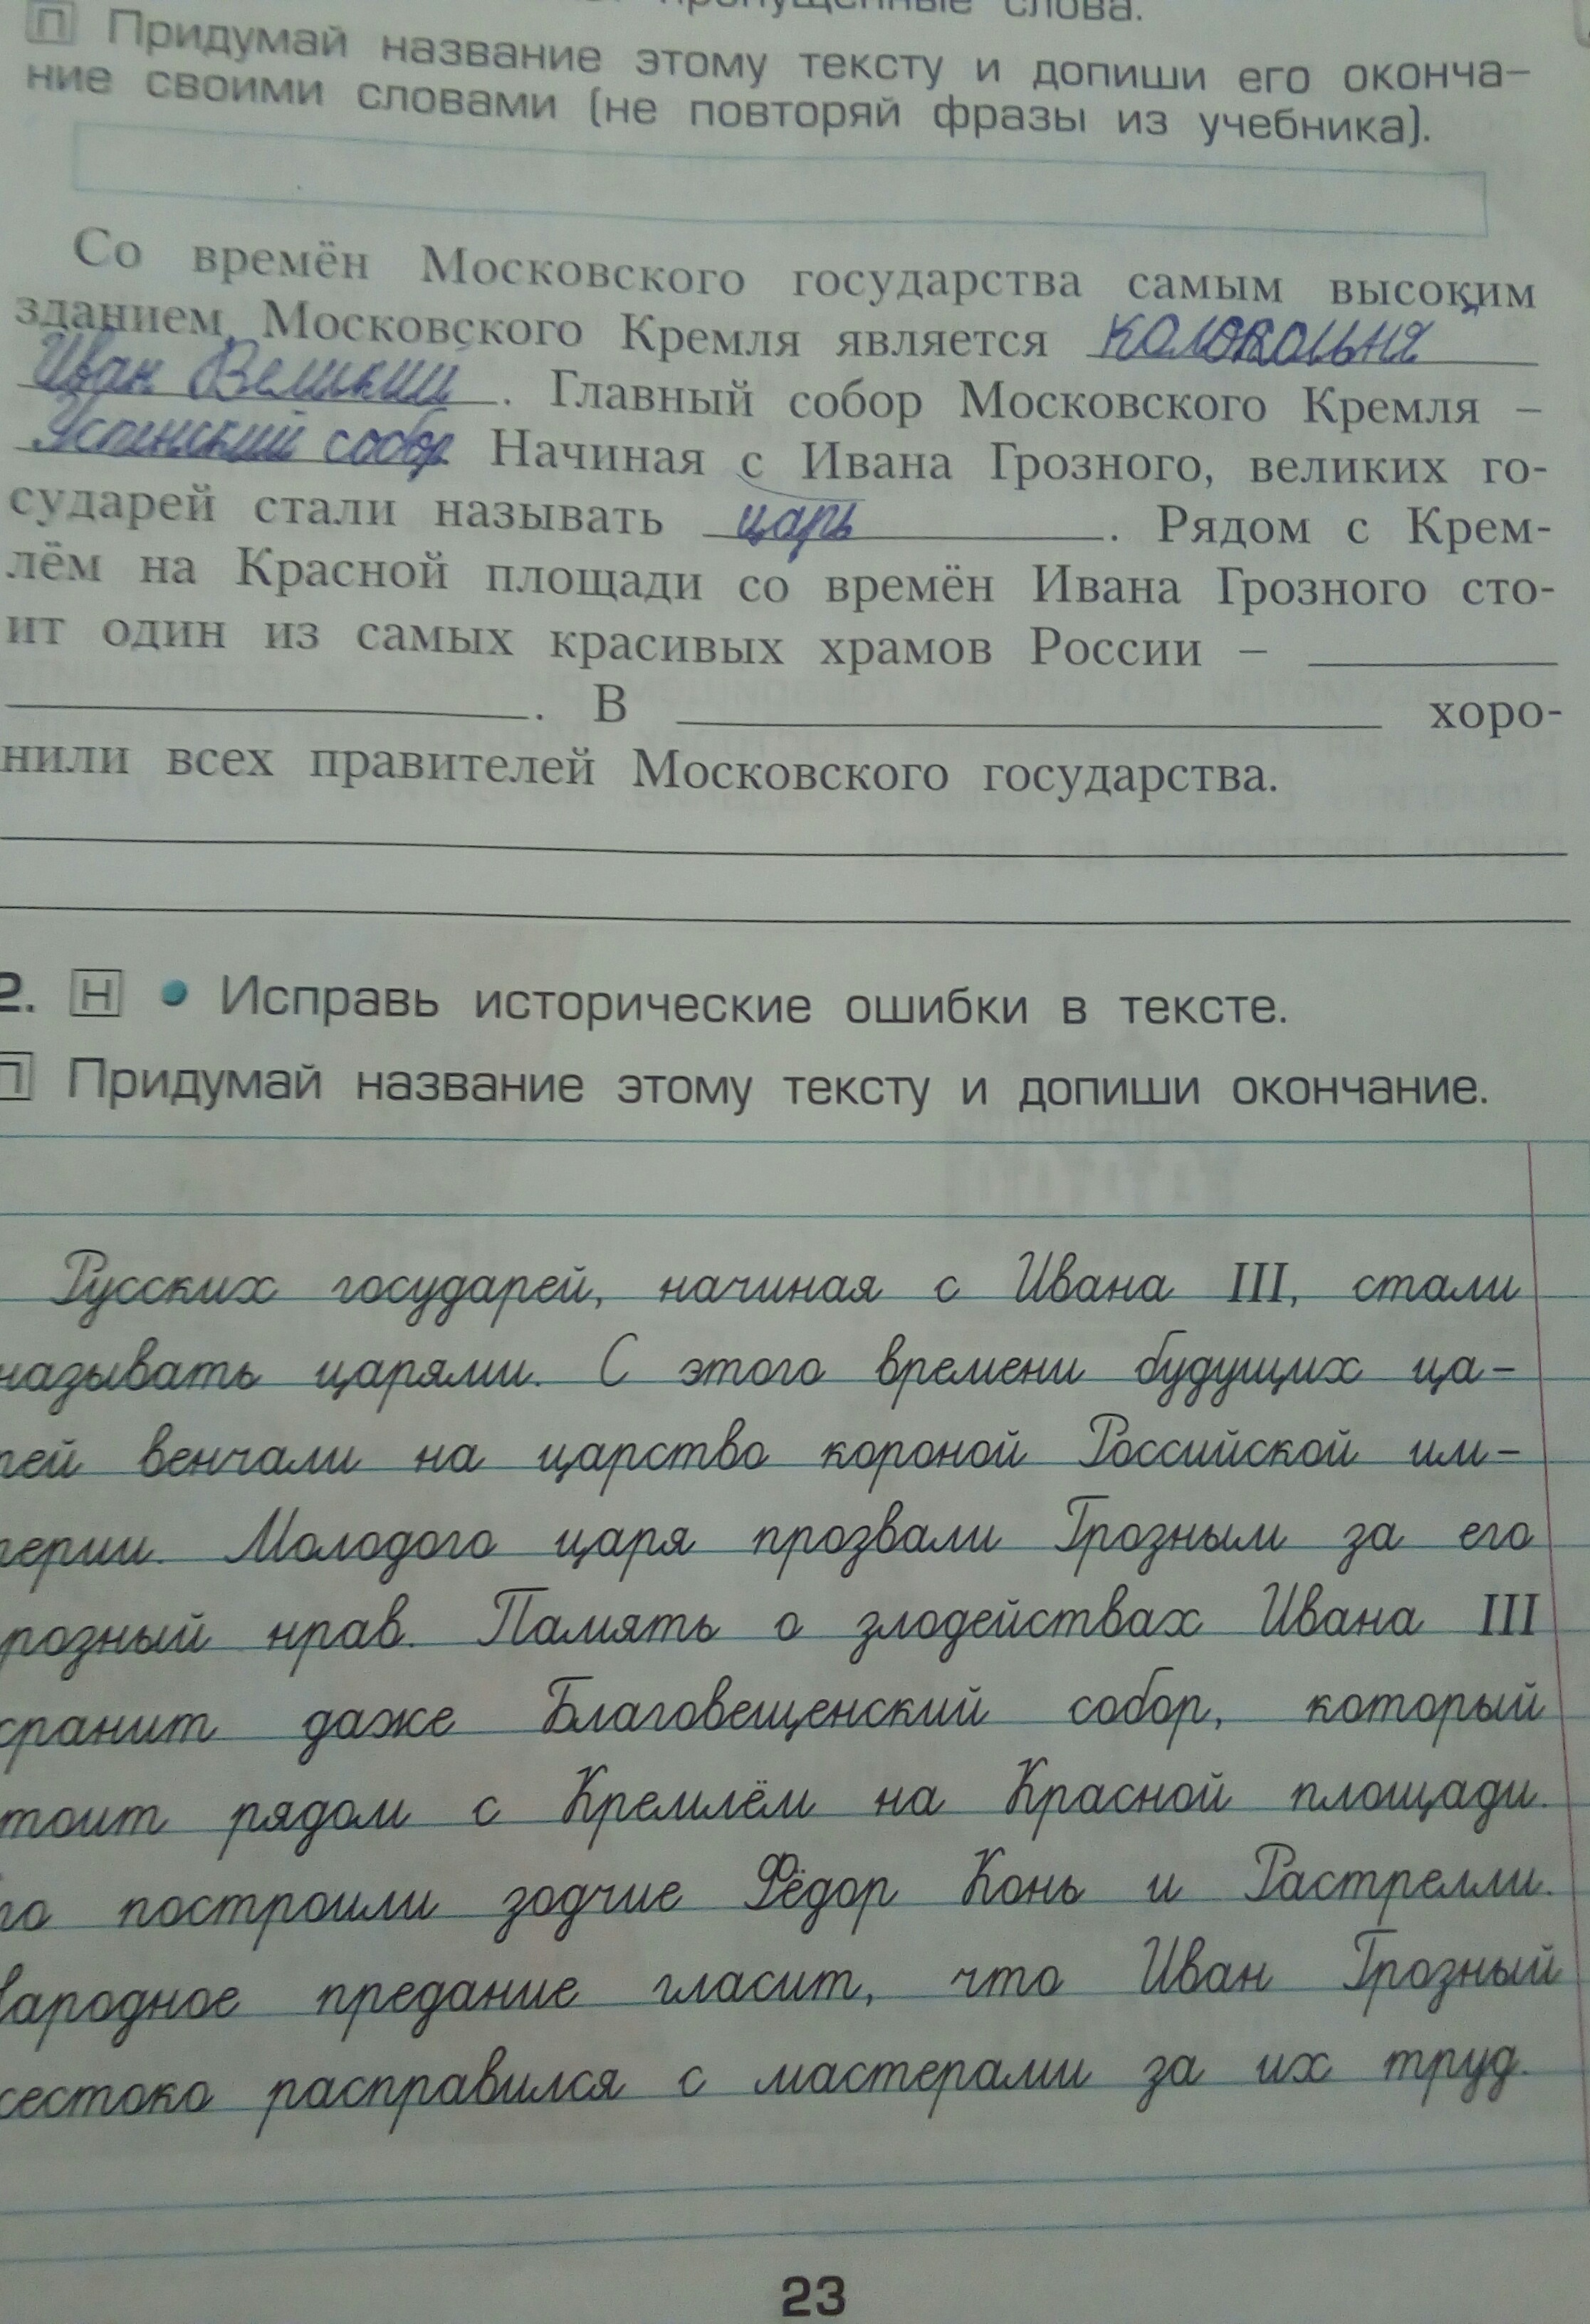 пропущенные слова.
П Придумай название этому тексту и допиши его оконча-
ние своими словами (не повторяй фразы из учебника).
Со времён Московского государства самым высоким
зданием Московского Кремля является колокольня
Иван Великий. Главный собор Московского Кремля –
Успенский собор. Начиная с Ивана Грозного, великих го-
сударей стали называть царь. Рядом с Крем-
лём на Красной площади со времён Ивана Грозного сто-
ит один из самых красивых храмов России –
. В хоро-
нили всех правителей Московского государства.
2. Н • Исправь исторические ошибки в тексте.
П Придумай название этому тексту и допиши окончание.
Русских государей, начиная с Ивана III, стали
называть царями. С этого времени будущих ца-
рей венчали на царство короной Российской им-
перии. Молодого царя прозвали Грозным за его
грозный нрав. Память о злодействах Ивана III
хранит даже Благовещенский собор, который
стоит рядом с Кремлём на Красной площади.
Его построили зодчие Фёдор Конь и Растрелли.
Народное предание гласит, что Иван Грозный
жестоко расправился с мастерами за их труд.
23